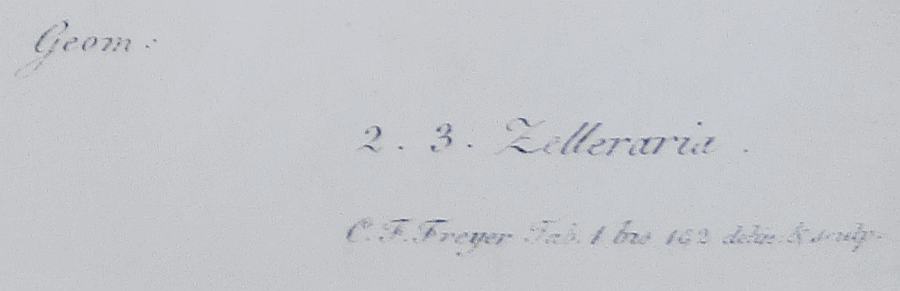 Geom:
2. 3. Zelleraria.
C. F. Freyer Tab. 1 bis 162 delin. & sculp.